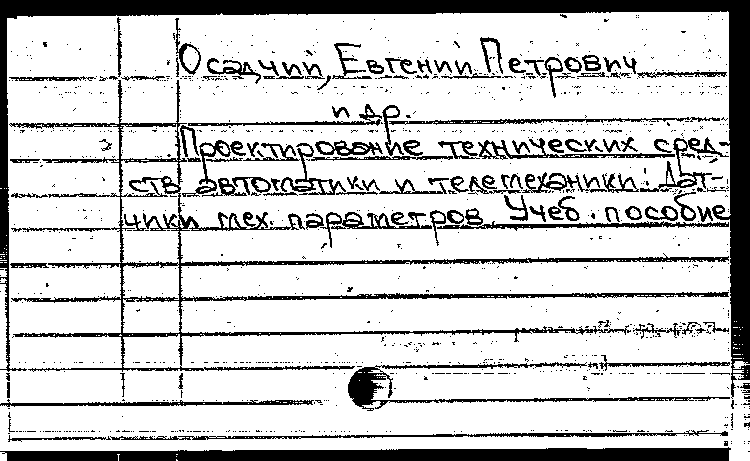 Осадчий, Евгений Петрович
и др.
Проектирование технических сред-
ств автоматики и телемеханики: Дат-
чики мех. параметров. Учеб. пособие